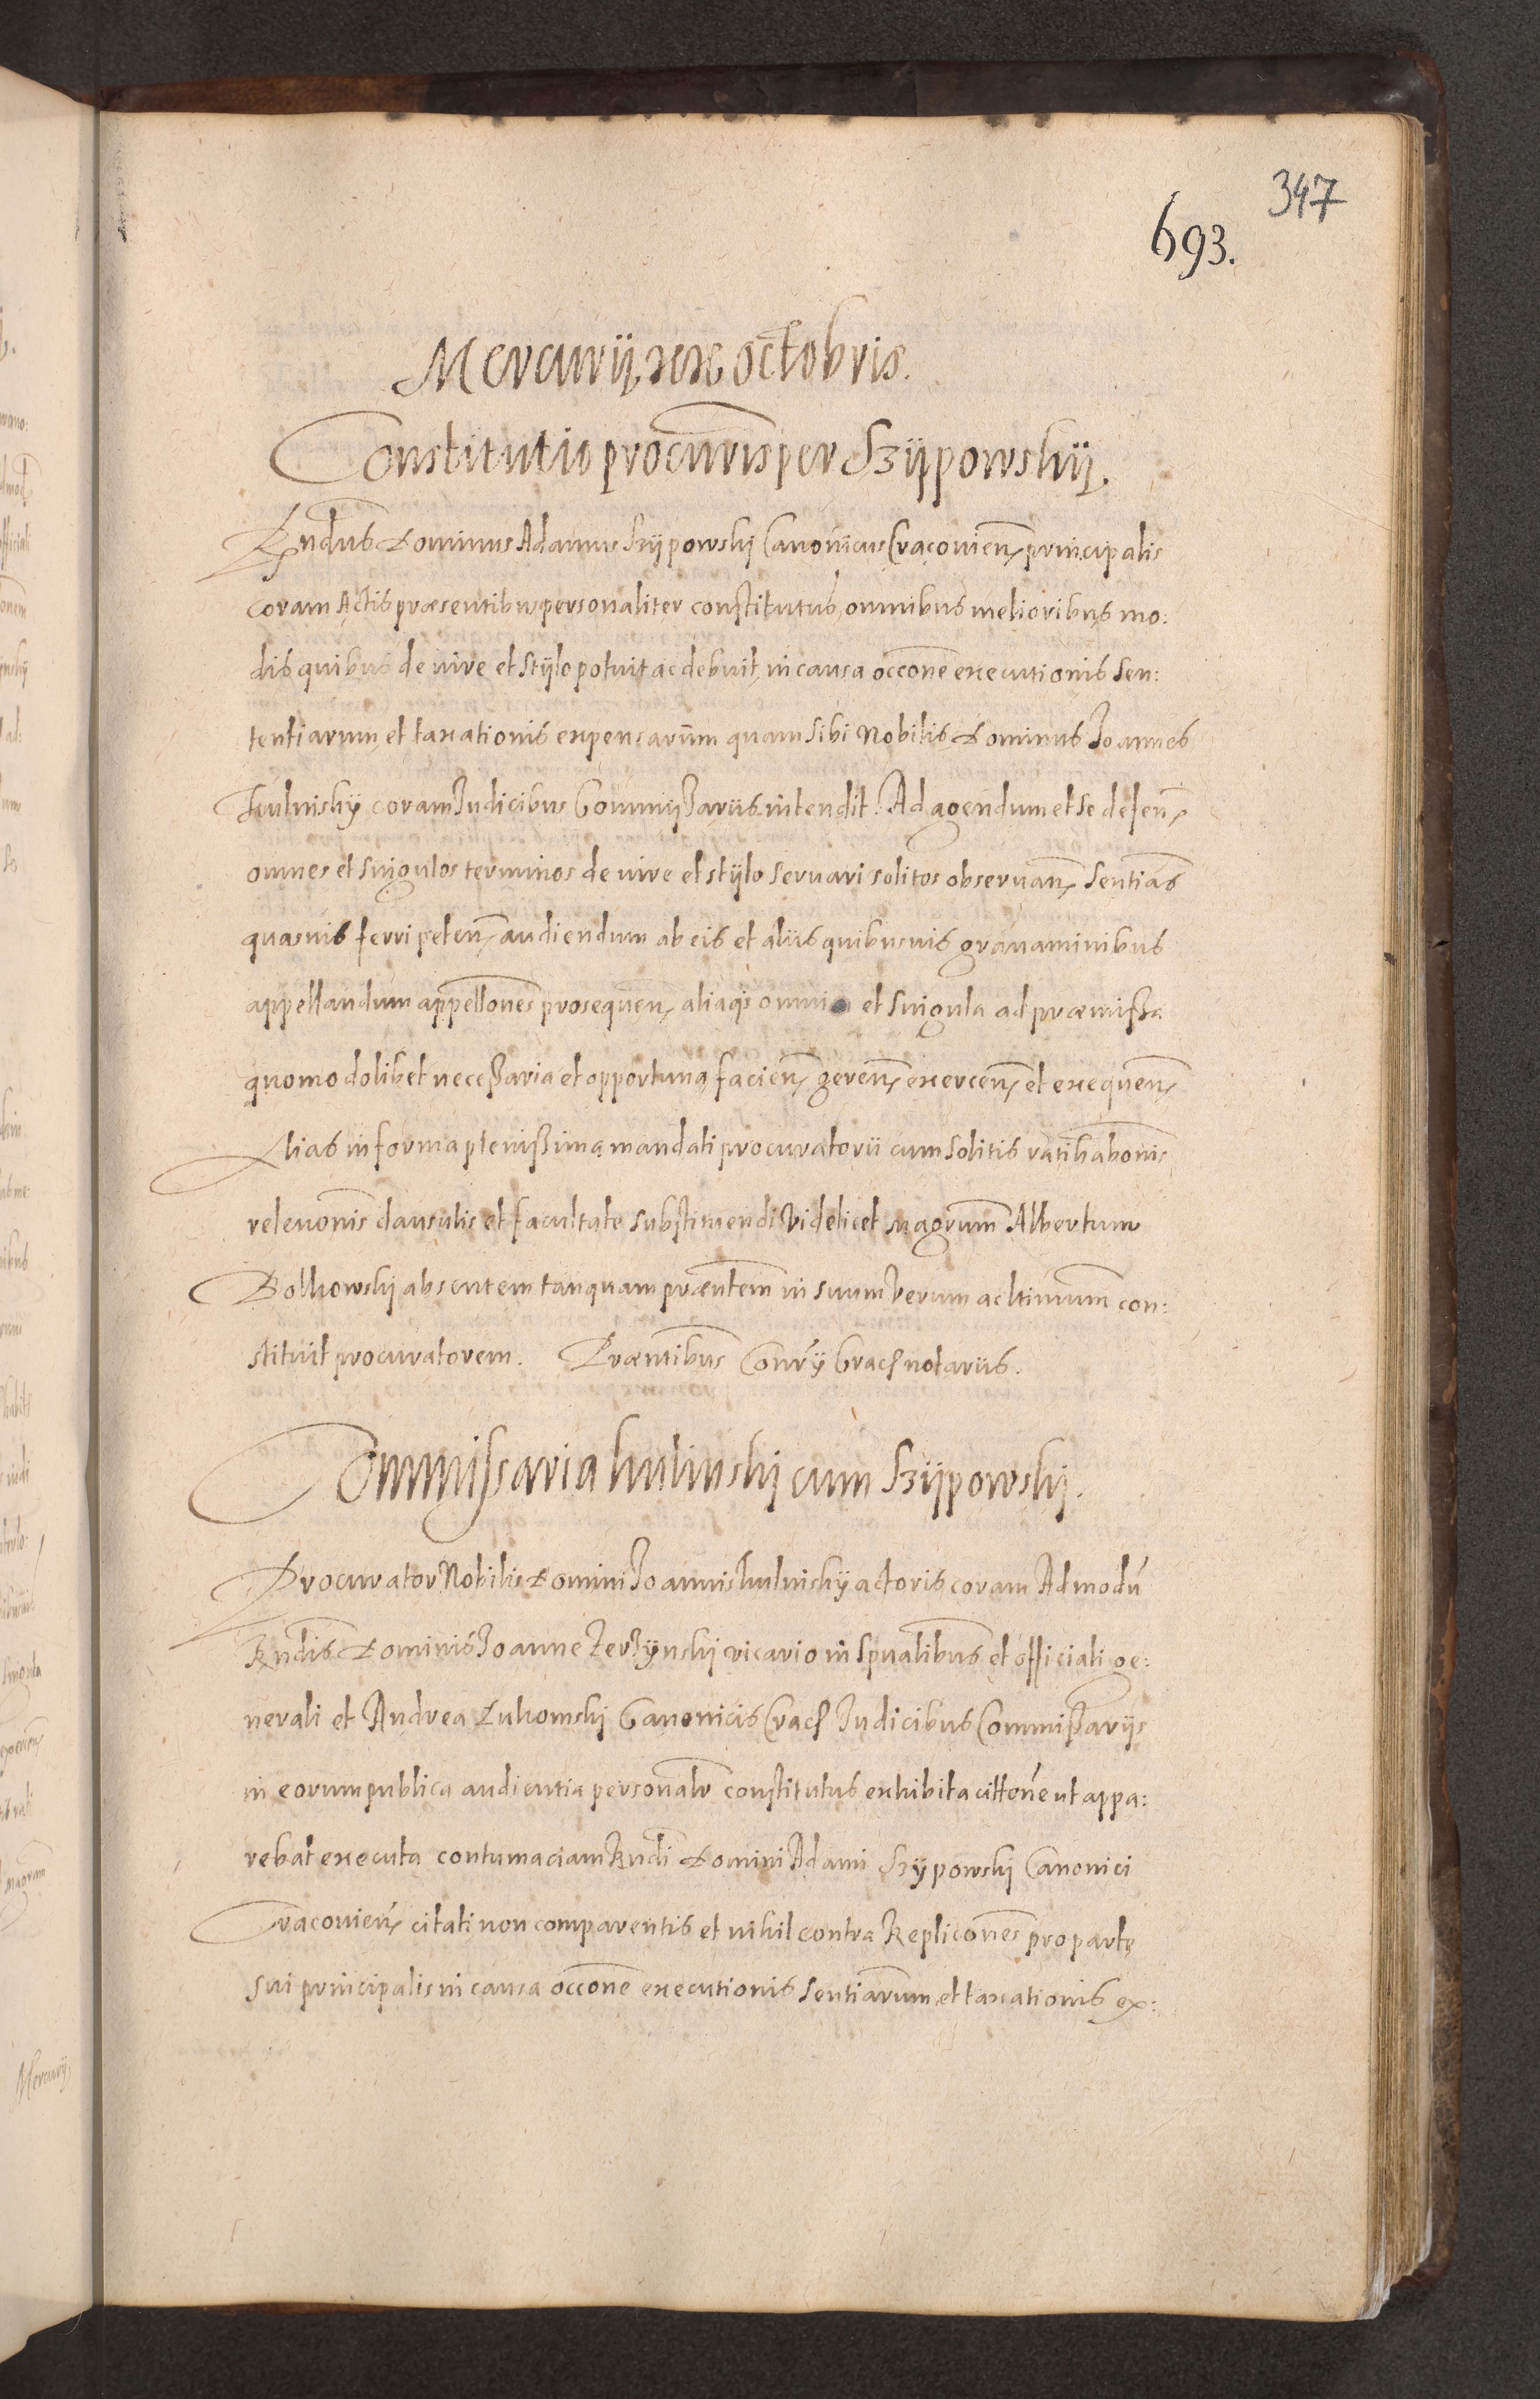 347
693.
Mercurij xxx octobris.
Constitutio procuris per Szÿpowskÿ.
Rndus Dominus Adamus Szÿpowskj Canonicus Cracouien principalis
coram Actis præsentibus personaliter constitutus, omnibus melioribus mo:
dis quibus de iure et stÿlo potuit ac debuit, in causa occone executionis sen:
tentiarum et taxationis expensarum quam sibi Nobilis Dominus Joannes
hulniskÿ coram Judicibus Commissariis intendit. Ad agendum et se defen
omnes et singulos terminos de iure et stÿlo seruari solitos obseruan sentias
quasuis ferri peten audiendum ab eis et aliis quibusuis grauaminibus
appellandum appellones prosequen, aliaqs omnia et singula ad præmissa
quomodolibet necessaria et opportuna facien geren exercen et exequen
Alias in forma plenissima mandati procuratorii cum solitis ratihabonis
releuonis clausulis et facultate substituendi Videlicet magrum Albertum
Bolkowskj absentem tanquam præntem in suum verum ac ltimum con:
stituit procuratorem. Præntibus Conrÿ Crac notariis.
Commissaria hulinskj cum Szÿpowskj.
Procurator Nobilis Domini Joannis hulniskÿ actoris coram Admodu
Rndis Dominis Joanne vicario in spualibus et officiali ge:
nerali et Andrea Lukomskj Canonicis Crac Judicibus Commissarijs
in eorum publica audientia personalr constitutus exhibita cittone ut appa:
rebat executa contumaciam Rndi Domini Adami Szÿpowskj Canonici
Cracouien citati non comparentis et nihil contra Replicones pro parte
sui principalis in causa occone executionis sentiarum et taxationis ex:
Mercurij